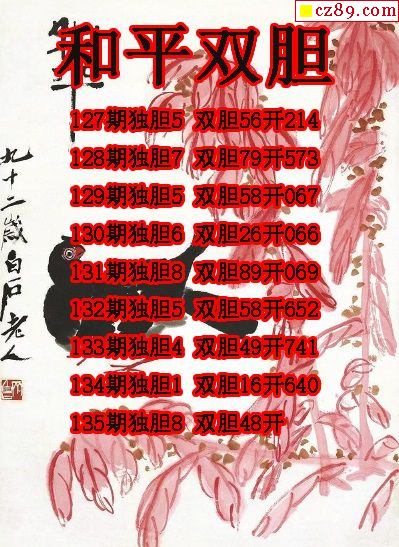 cz89.com
和平
和平双胆
127期独胆5 双胆56开214
128期独胆7 双胆79开573
129期独胆5 双胆58开067
130期独胆6 双胆26开066
131期独胆8 双胆89开069
132期独胆5 双胆58开652
133期独胆4 双胆49开741
134期独胆1 双胆16开640
135期独胆8 双胆48开
九十二岁白石老人